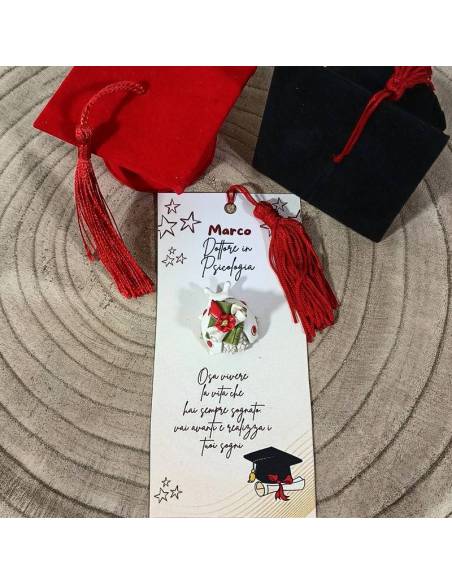 Marco
Dottore in
Psicologia
Osa vivere
la vita che
hai sempre sognato
vai avanti e realizza i
tuoi sogni